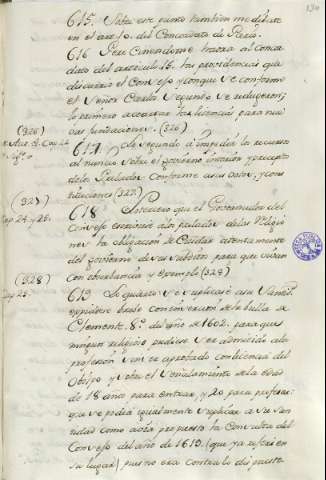 130
615. Sobre este punto tambien me dilaté
en el art.º 10. del Concordato de Paris.
616 Pero Ciñendome ahora al Concor
dato del articulo 16. las providencias que
discurrió el Consejo y con que se conformó
el Señor Carlos Segundo se reduxeron;
lo primero a escasear las licencias para nue
vas fundaciones. (326)
(326)
617 Lo segundo a impedir los recursos
al nuncio sobre el govierno interior y precepto
de los Prelados Conforme a sus votos, y cons
tituciones (327)
(327)
Cap. 24. y 25.
618 Lo tercero que el Governador del
Consejo encargue a los prelados de las Religio
nes la obligacion de Cuidar atentamente
del govierno de sus subditos para que vivan
con observancia y exemplo (328)
(328)
Cap. 25.
619 Lo quarto se suplicase a su Santid.
expidiese breve con insercion de la bulla de
Clemente 8.º del año de 1602. para que
ningun religioso pudiese ser admitido a la
profesion sin ser aprobado con licencia del
Obispo y sobre el señalamiento de la edad
de 18 años para entrar, y 20 para profesar:
que se podia igualmente suplicar a Su San
tidad como avia propuesto la Consulta del
Consejo del año de 1619. (que ya referí en
su lugar) pues no era contra lo dispuesto